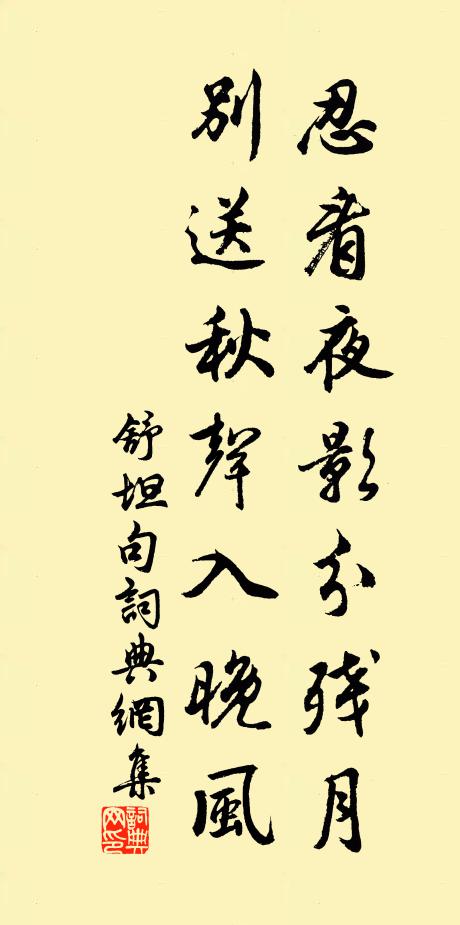 忍看夜影分残月
別送秋聲入晚風
舒坦句詞典網集
詞典网印